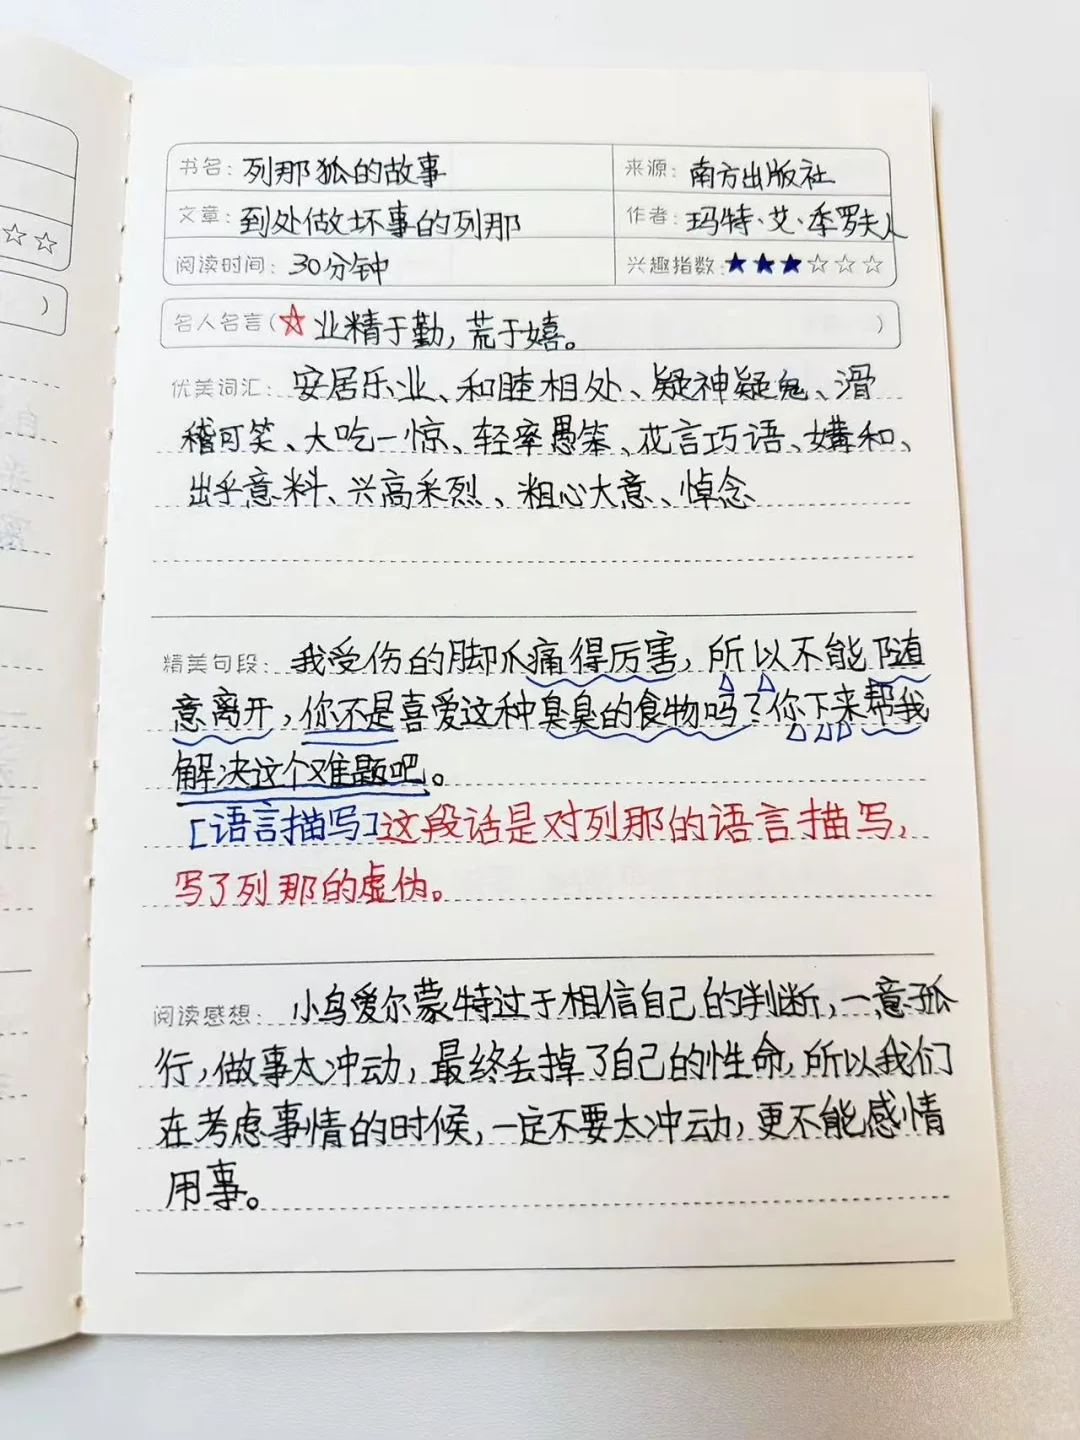 书名: 列那狐的故事
来源: 南方出版社
文章: 到处做坏事的列那
作者: 玛特·艾·季罗夫人
阅读时间: 30分钟
兴趣指数: ★★★☆☆☆
名人名言(☆业精于勤,荒于嬉。)
优美词汇: 安居乐业、和睦相处、疑神疑鬼、滑
稽可笑、大吃一惊、轻率愚笨、花言巧语、媾和、
出乎意料、兴高采烈、粗心大意、悼念
精美句段: 我受伤的脚爪痛得厉害,所以不能随
意离开,你不是喜爱这种臭臭的食物吗?你下来帮我
解决这个难题吧。
[语言描写]这段话是对列那的语言描写,
写了列那的虚伪。
阅读感想: 小鸟爱尔蒙特过于相信自己的判断,一意孤
行,做事太冲动,最终丢掉了自己的性命,所以我们
在考虑事情的时候,一定不要太冲动,更不能感情
用事。